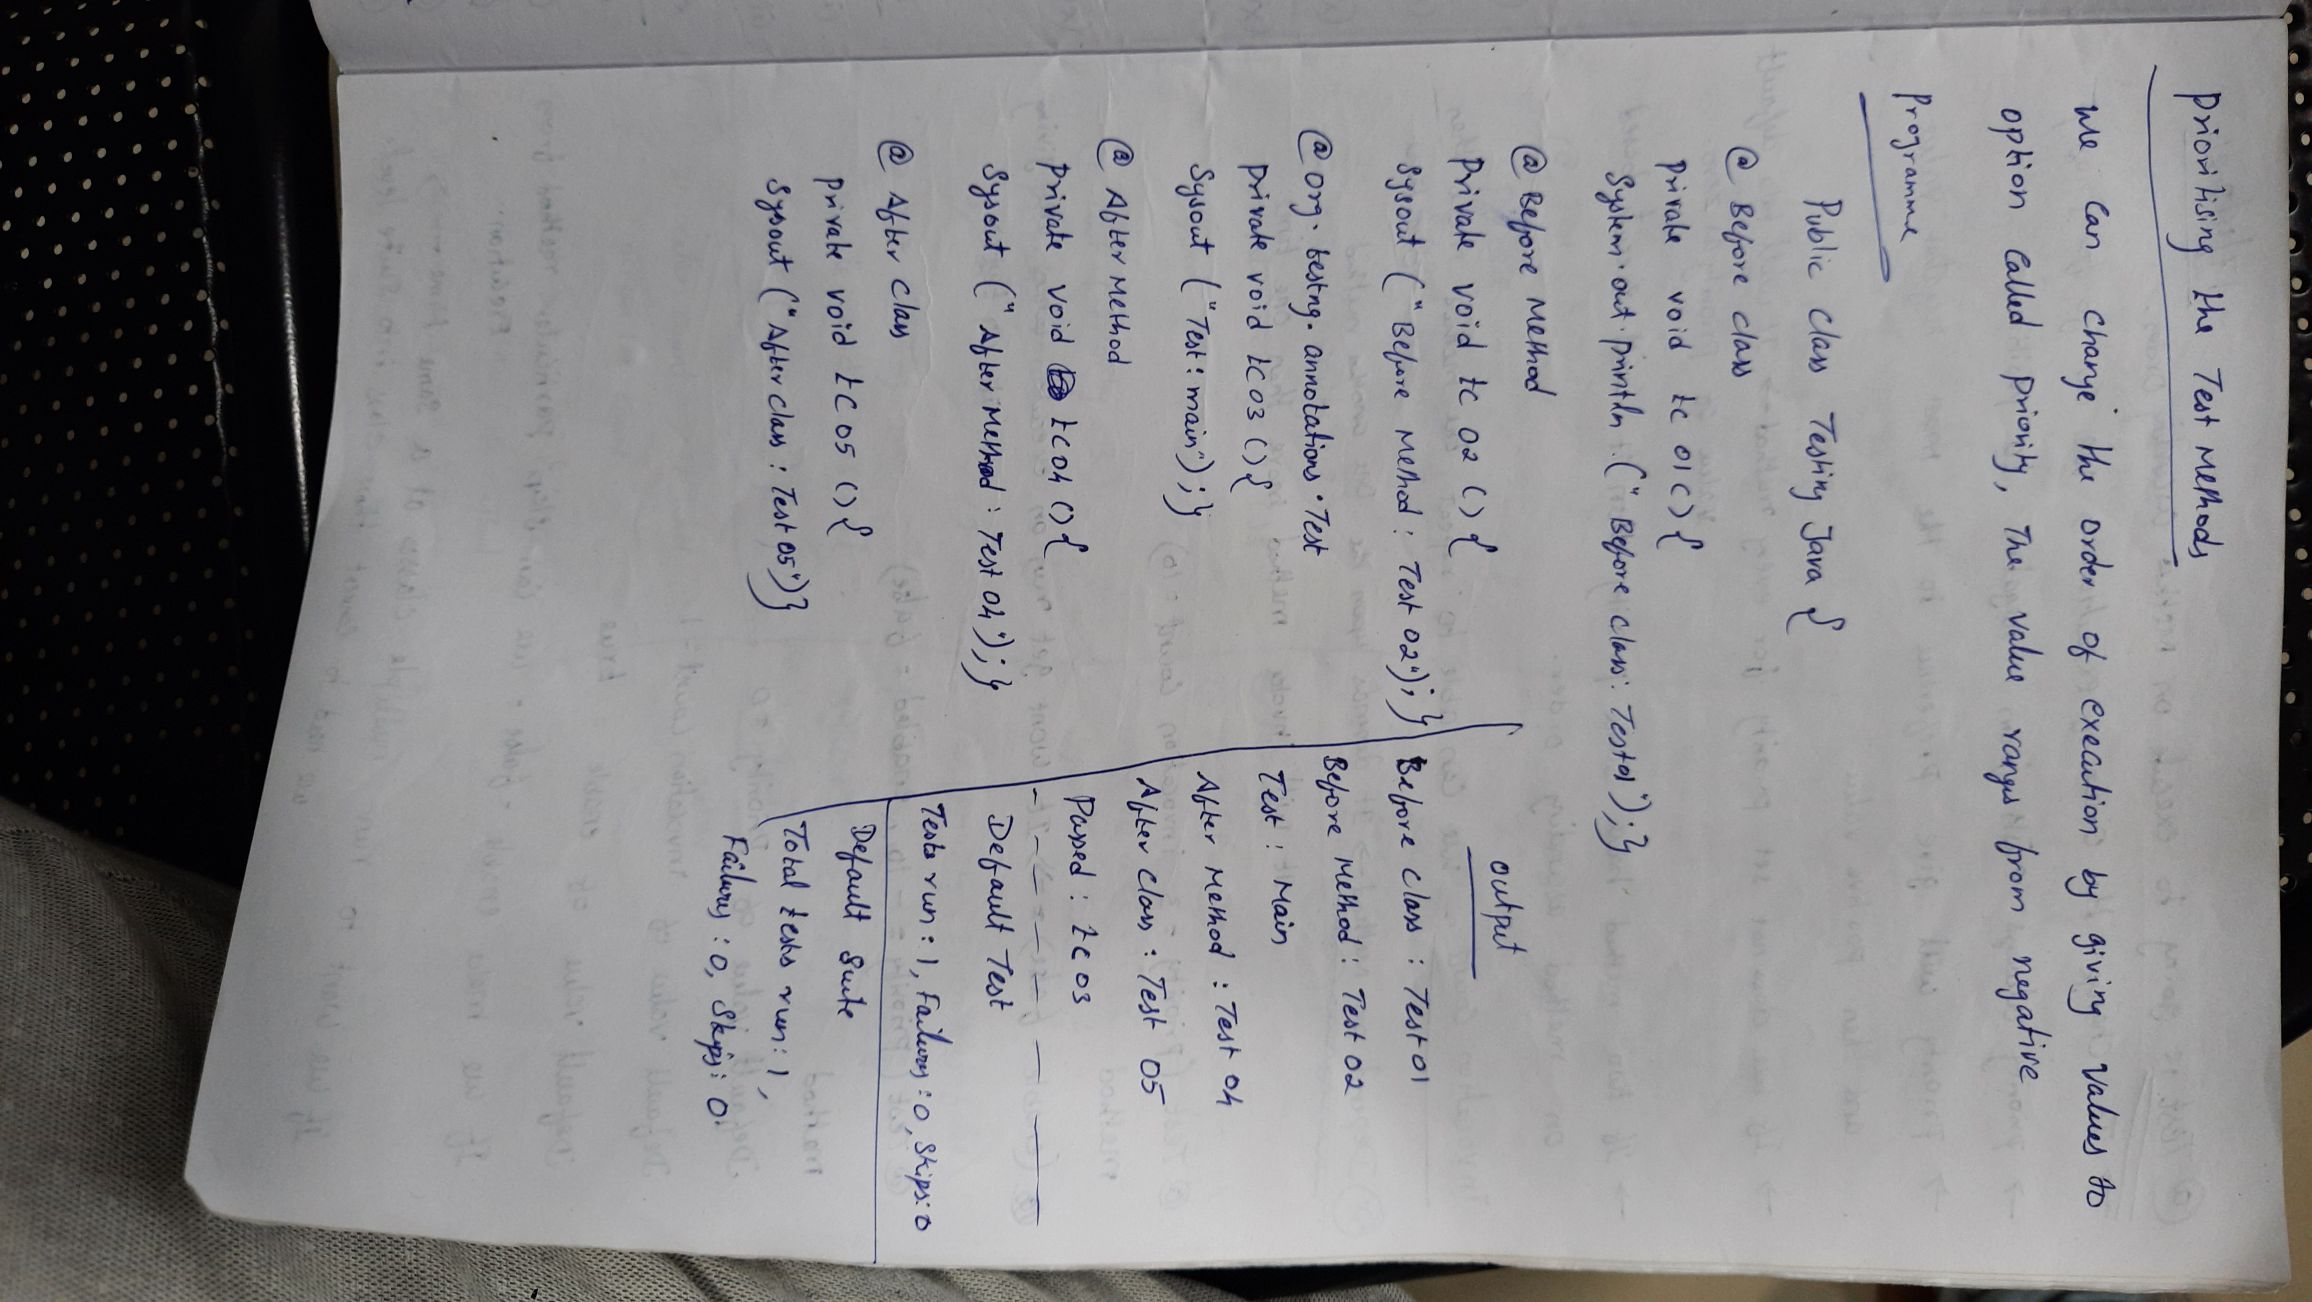 Prioritising the Test Methods
We can change the order of execution by giving values to
option called priority, The value ranges from negative
Programme
Public class Testing Java {
@ Before class
Private void tc 01() {
System.out.println ("Before class: Test01");}
@ Before Method
Private void tc 02 () {
Sysout ("Before Method: Test 02");}
@ org. testng. annotations. Test
Private void tc03 () {
Sysout ("Test: main");}
@ After Method
Private void tc04 () {
Sysout ("After Method: Test 04");}
@ After class
Private void tc 05 () {
Sysout ("After class: Test 05")}
output
Before class : Test 01
Before Method : Test 02
Test : Main
After Method : Test 04
After class : Test 05
Passed : tc 03
Default Test
Tests run: 1, Failures: 0, Skips: 0
Default Suite
Total tests run: 1,
Failures : 0, Skips: 0